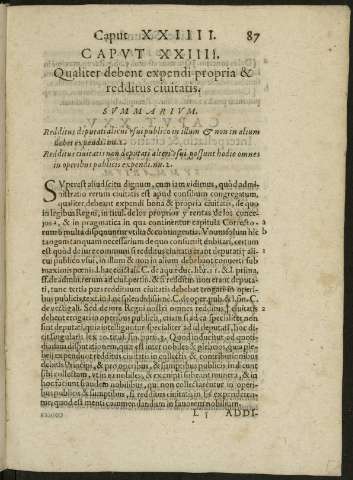 Caput XXIIII. 87
CAPVT XXIIII.
Qualiter debent expendi propria &
redditus ciuitatis.
SVMMARIVM.
Redditus deputati alicui vsui publico in illum & non in alium
debet expendi. nu. 1.
Redditus ciuitatis non deputati alteri vsui possunt hodie omnes
in operibus publicis expendi. nu. 2.
SVperest aliud scitu dignum, cum iam vidimus, quòd admi-
nistratio rerum ciuitatis est apud consilium congregatum,
qualiter debent expendi bona & propria ciuitatis, de quo
in legibus Regni, in titul. de los proprios y rentas de los conce-
jos, & in pragmatica in qua continentur capitula Correcto-
rum multa disponuntur vtilia & contingentia. Vnum solum hîc
tangam tanquam necessarium de quo consueuit dubitari, certum
est quòd de iure communi si redditus ciuitatis erant deputati ali-
cui publico vsui, in illum & non in alium debebant conuerti sub
maximis poenis
ti, tunc tertia pars reddituum ciuitatis debebat erogari in operi-
bus publicis
debent erogari in operibus publicis, etiam si ad ea specialiter non
sint deputati, quia intelliguntur specialiter ad id deputati, hoc di-
cit singularis lex 20. titul. 32. part. 3. Quod inducitur ad quoti-
dianam disputationem, quae est inter nobiles & plebeios, quia ple-
bei expendunt redditus ciuitatis in collectis & contributionibus
debitis Principi, & pro operibus, & sumptibus publicis indicunt
sibi collectam, vt in ea nobiles, & exempti soluant munera, &
in hoc faciunt fraudem nobilibus, qui non collectarentur in operi-
bus publicis & sumptibus, si redditus ciuitatis in eis expenderen-
tur, quod est menti commendandum in fauorem nobilium.
L 3 ADDI-